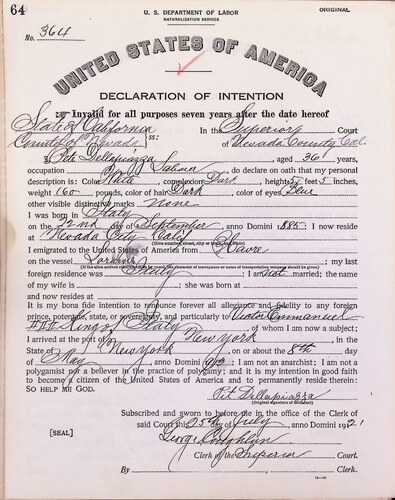 64
U. S. DEPARTMENT OF LABOR
NATURALIZATION SERVICE
ORIGINAL
No. 364
UNITED STATES OF AMERICA
DECLARATION OF INTENTION
Invalid for all purposes seven years after the date hereof
State of California
County of Nevada ss: In the Superior Court of Nevada County, Cal.
I, Pit Dellapiazza, aged 36 years,
occupation Labour, do declare on oath that my personal
description is: Color White, complexion Dark, height 5 feet 5 inches,
weight 160 pounds, color of hair Dark, color of eyes Blue
other visible distinctive marks none
I was born in Italy
on the 22nd day of September, anno Domini 1885; I now reside
at Nevada City Calif
(Give number, street, city or town, and State.)
I emigrated to the United States of America from Havre
on the vessel; my last
(If the alien arrived otherwise than by vessel, the character of conveyance or name of transportation company should be given.)
foreign residence was Italy; I am not married; the name
of my wife is; she was born at
and now resides at
It is my bona fide intention to renounce forever all allegiance and fidelity to any foreign
prince, potentate, state, or sovereignty, and particularly to Victor Emmanuel
III King of Italy, of whom I am now a subject;
I arrived at the port of New York, in the
State of New York, on or about the day
of May, anno Domini; I am not an anarchist; I am not a
polygamist nor a believer in the practice of polygamy; and it is my intention in good faith
to become a citizen of the United States of America and to permanently reside therein:
SO HELP ME GOD.
Pit Dellapiazza
(Original signature of declarant.)
Subscribed and sworn to before me in the office of the Clerk of
said Court this 25th day of July, anno Domini 1921
[SEAL]
Clerk of the Superior Court.
By, Clerk.